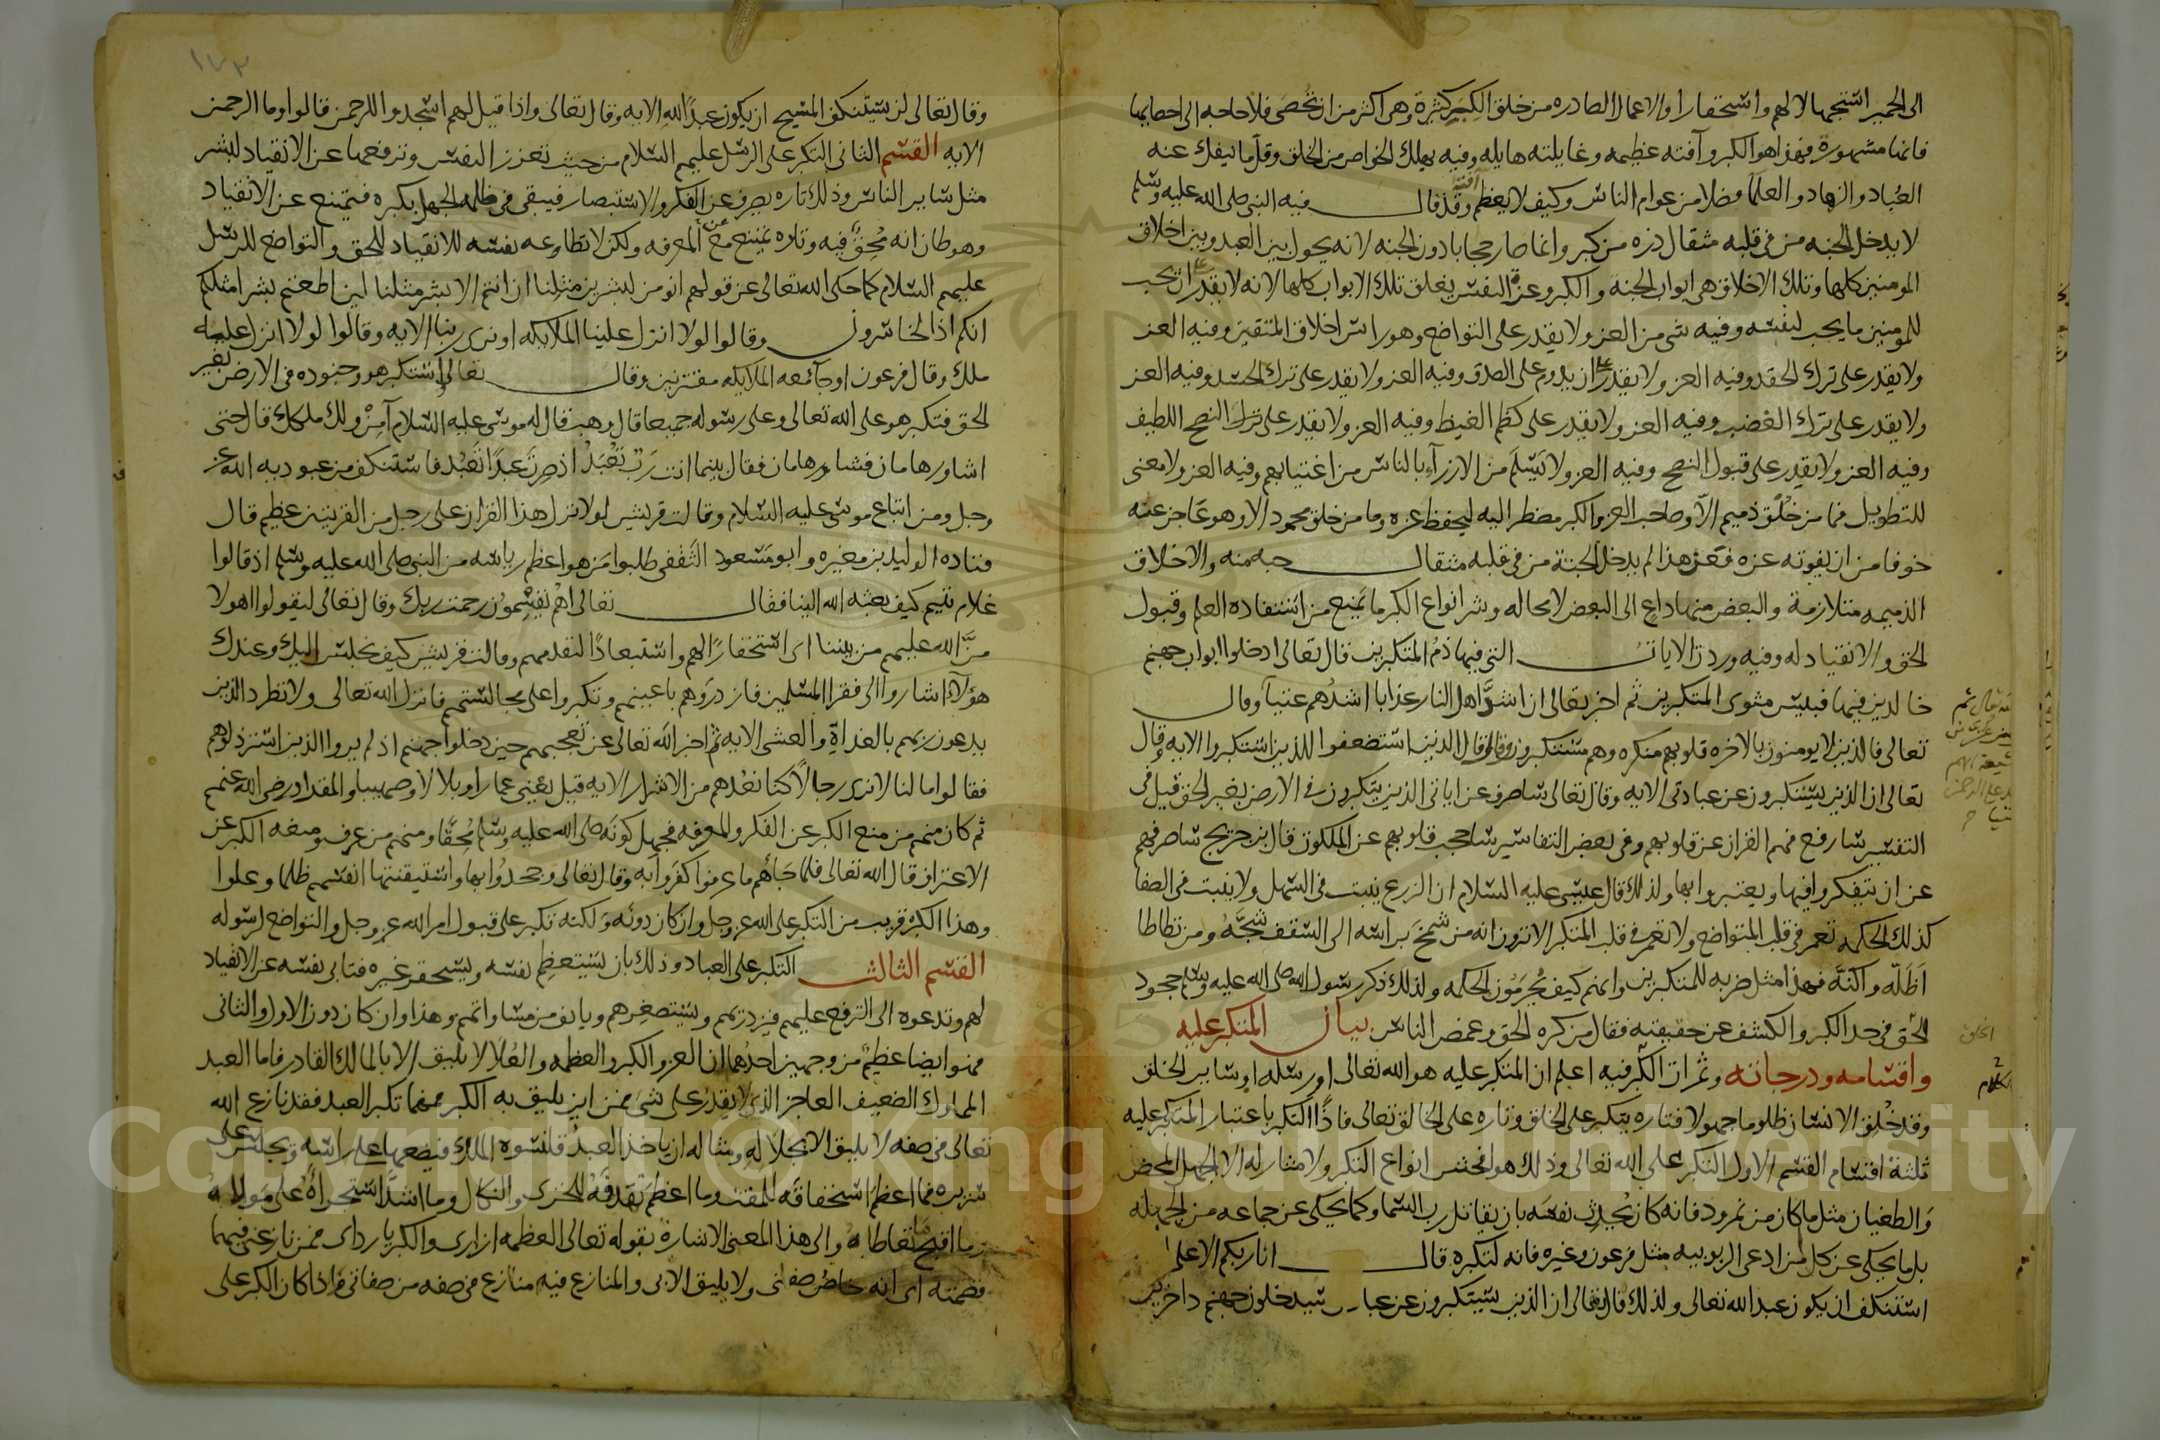 الى الحمير استجهالا لهم واستحقارا والاعمال الصادره من خلق الكبر كثيرة وهى اكثر من ان تحصى فلا حاجه الى احصايها
فانها مشهورة فهذا هو الكبر وآفته عظيمه وغايلته هايله وفيه يهلك الخواص من الخلق وقل ما ينفك عنه
العباد والزهاد والعلما فضلا من عوام الناس وكيف لا يعظم آفته وقد قال فيه النبى صلى الله عليه وسلم
لا يدخل الجنه من فى قلبه مثقال ذره من كبر وانما صار حجابا دون الجنه لانه يحول بين العبد وبين اخلاق
المومنين كلها وتلك الاخلاق هى ابواب الجنه والكبر وعزة النفس يغلق تلك الابواب كلها لانه لا يقدر على ان يحب
للمومنين ما يحب لنفسه وفيه شى من العز ولا يقدر على التواضع وهو راس اخلاق المتقين وفيه العز
ولا يقدر على ترك الحقد وفيه العز ولا يقدر على ان يدوم على الصدق وفيه العز ولا يقدر على ترك الحسد وفيه العز
ولا يقدر على ترك الغضب وفيه العز ولا يقدر على كظم الغيظ وفيه العز ولا يقدر على ترك النصح اللطيف
وفيه العز ولا يقدر على قبول النصح وفيه العز ولا يسلم من الازرآء بالناس من اغتيابهم وفيه العز ولا معنى
للتطويل فما من خلق ذميم الا وصاحب العز والكبر مضطر اليه ليحفظ عزه وما من خلق محمود الا وهو عاجز عنه
خوفا من ان يفوته عزه فعن هذا لم يدخل الجنة من فى قلبه مثقال حبه منه والاخلاق
الذميمه متلازمة والبعض منها داع الى البعض لا محاله وشر انواع الكبر ما يمنع من استفاده العلم وقبول
الحق والانقياد له وفيه وردت الايات التى فيها ذم المتكبرين قال تعالى ادخلوا ابواب جهنم
خالدين فيها فبيس مثوى المتكبرين ثم اخبر تعالى ان اشد اهل النار عذابا اشدهم عتيا وقال
تعالى فالذين لا يومنون بالاخره قلوبهم منكره وهم مستكبرون وقال الذين استضعفوا للذين استكبروا الايه وقال
تعالى ان الذين يستكبرون عن عبادتى الايه وقال تعالى ساصرف عن اياتى الذين يتكبرون فى الارض بغير الحق قيل فى
التفسير سارفع فهم القران عن قلوبهم وفى بعض التفاسير ساحجب قلوبهم عن الملكوت قال بن جريج ساصرفهم
عن ان يتفكروا فيها ويعتبروا بها ولذلك قال عيسى عليه السلام ان الزرع ينبت فى السهل ولا ينبت فى الصفا
كذلك الحكمه تعمر فى قلب المتواضع ولا تعمر فى قلب المتكبر الا ترون انه من شمخ براسه الى السقف شجه ومن تطاطا
اظله واكنه فهذا مثل ضربه للمتكبرين وانهم كيف يحرمون الحكمه ولذلك ذكر رسول الله صلى الله عليه وسلم جحود
الحق فى حد الكبر والكشف عن حقيقته فقال من كره الحق وغمص الناس بيان المتكبر عليه
واقسامه ودرجاته وثمرات الكبر فيه اعلم ان المتكبر عليه هو الله تعالى او رسله او ساير الخلق
وقد خلق الانسان ظلوما جهولا فتاره يتكبر على الخلق وتاره على الخالق تعالى فاذا التكبر باعتبار المتكبر عليه
ثلثة اقسام القسم الاول التكبر على الله تعالى وذلك هو افحش انواع التكبر ولا مثار له الا الجهل المحض
والطغيان مثل ما كان من نمرود فانه كان يحدث نفسه بان يقاتل رب السما وكما يحكى عن جماعه من الجهله
بل ما يحكى عن كل من ادعى الربوبيه مثل فرعون وغيره فانه لتكبره قال انا ربكم الاعلى
استنكف ان يكون عبد الله تعالى ولذلك قال تعالى ان الذين يستكبرون عن عبا سيدخلون جهنم داخرين
الكلام
١٧٣
وقال تعالى لن يستنكف المسيح ان يكون عبدا لله الايه وقال تعالى واذا قيل لهم اسجدوا للرحمن قالوا وما الرحمن
الايه القسم الثانى التكبر على الرسل عليهم السلام من حيث تعزز النفس وترفعها عن الانقياد لبشر
مثل ساير الناس وذلك تاره يصرف عن الفكر والاستبصار فيبقى فى ظلمه الجهل بكبره فيمتنع عن الانقياد
وهو ظان انه محق فيه وتاره يمتنع مع المعرفه ولكن لا تطاوعه نفسه للانقياد للحق والتواضع للرسل
عليهم السلام كما حكى الله تعالى عن قولهم انومن لبشرين مثلنا ان انتم الا بشر مثلنا لين اطعتم بشرا مثلكم
انكم اذا لخاسرون وقالوا لولا انزل علينا الملايكه او نرى ربنا الايه وقالوا لولا انزل عليه
ملك وقال فرعون او جآ معه الملايكه مقترنين وقال تعالى واستكبر هو وجنوده فى الارض بغير
الحق فتكبر هو على الله تعالى وعلى رسوله جميعا قال وهب قال له موسى عليه السلام آمن ولك ملكك قال حتى
اشاور هامان فشاور هامان فقال بينما انت رب تعبد اذ صرت عبدا تعبد فاستنكف من عبوديه الله عز
وجل ومن اتباع موسى عليه السلام وقالت قريش لولا نزل هذا القران على رجل من القريتين عظيم قال
قتاده الوليد بن مغيره وابو مسعود الثقفى طلبوا من هو اعظم رياسه من النبى صلى الله عليه وسلم اذ قالوا
غلام يتيم كيف بعثه الله الينا فقال تعالى اهم يقسمون رحمت ربك وقال تعالى ليقولوا اهولا
من الله عليهم من بيننا اى استحقارا لهم واستبعادا لتقدمهم وقالت قريش كيف نجلس اليك وعندك
هؤلآء اشاروا الى فقرا المسلمين فازدروهم باعينهم وتكبروا على مجالستهم فانزل الله تعالى ولا تطرد الذين
يدعون ربهم بالغداة والعشى الايه ثم اخبر الله تعالى عن تعجبهم حين دخلوا جهنم اذ لم يروا الذين استرذلوهم
فقالوا ما لنا لا نرى رجالا كنا نعدهم من الاشرار الايه قيل يعنى عمارا وبلالا وصهيبا والمقداد رضى الله عنهم
ثم كان منهم من منع الكبر عن الفكر والمعرفه فجهل كونه صلى الله عليه وسلم محقا ومنهم من عرف ومنعه الكبر عن
الاعتراف قال الله تعالى فلما جآهم ما عرفوا كفروا به وقال تعالى وجحدوا بها واستيقنتها انفسهم ظلما وعلوا
وهذا الكبر قريب من التكبر على الله عز وجل وان كان دونه ولكنه تكبر على قبول امر الله عز وجل والتواضع لرسوله
القسم الثالث التكبر على العباد وذلك بان يستعظم نفسه ويستحقر غيره فتابى نفسه عن الانقياد
لهم وتدعوه الى الترفع عليهم فيزدريهم ويستصغرهم ويانف من مساواتهم وهذا وان كان دون الاول والثانى
فهو ايضا عظيم من وجهين احدهما ان العز والكبر والعظمه والعلا لا يليق الا بالمالك القادر فاما العبد
المملوك الضعيف العاجز الذى لا يقدر على شى فمن اين يليق به الكبر فمهما تكبر العبد فقد نازع الله
تعالى فى صفه لا يليق الا بجلاله ومثاله ان ياخذ العبد قلنسوه الملك فيضعها على راسه ويجلس على
سريره فما اعظم استحقاقه للمقت وما اعظم تهدفه للخزى والنكال وما اشد استجراه على مولاه
وما اقبح ما تعاطاه والى هذا المعنى الاشارة بقوله تعالى العظمه ازارى والكبريا رداى فمن نازعنى فيهما
قصمته اى انه خاص صفتى ولا يليق الا بى والمنازع فيه منازع فى صفه من صفاتى فاذا كان الكبر على
Copyright © King Saud University
1957